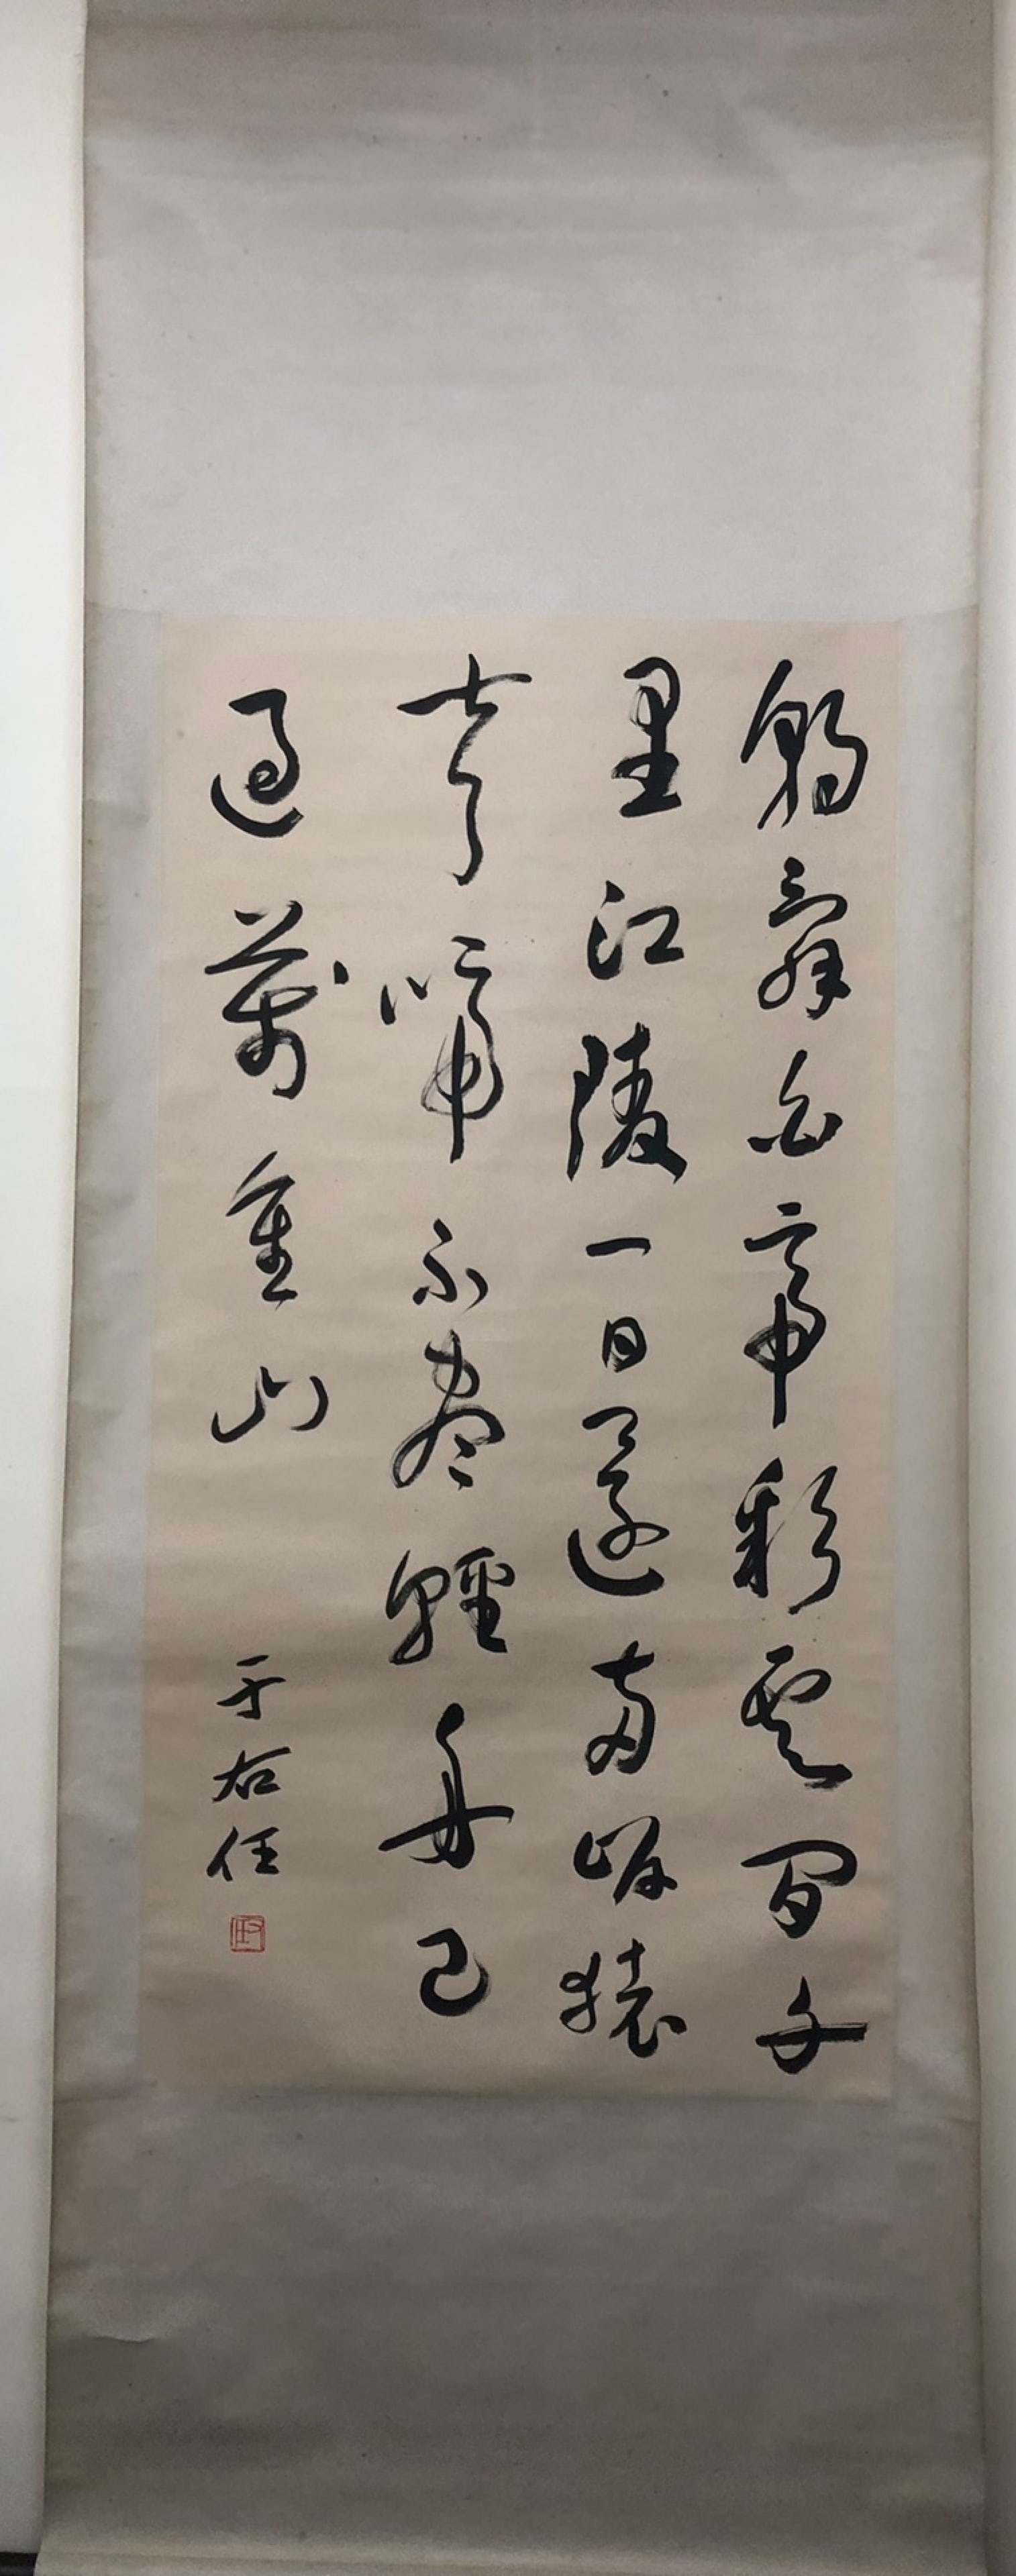 朝辭白帝彩雲間千
里江陵一日還兩岸猿
聲啼不盡輕舟已
過萬重山
于右任
右任